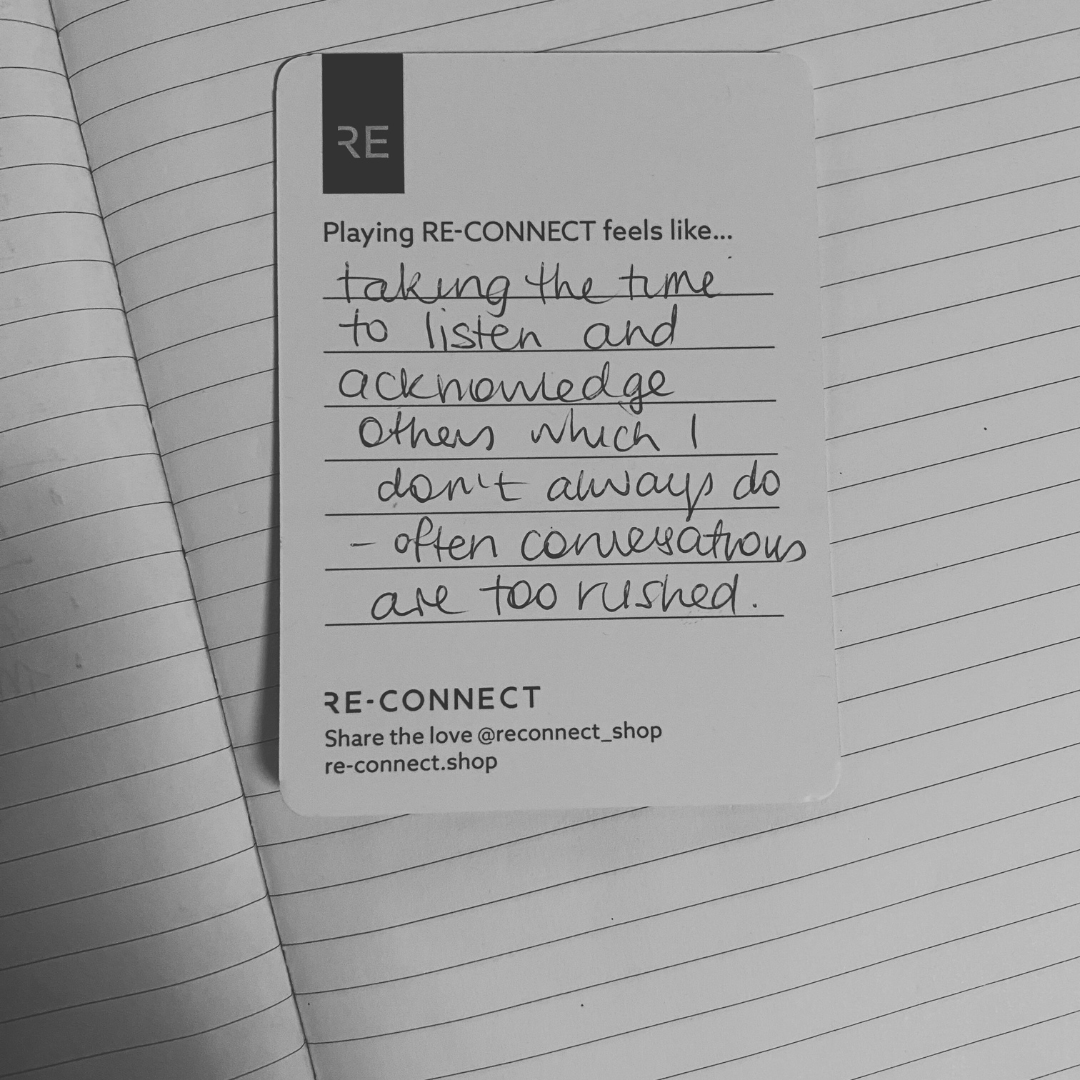 RE
Playing RE-CONNECT feels like...
taking the time
to listen and
acknowledge
others which I
don't always do
- often conversations
are too rushed.
RE-CONNECT
Share the love @reconnect_shop
re-connect.shop